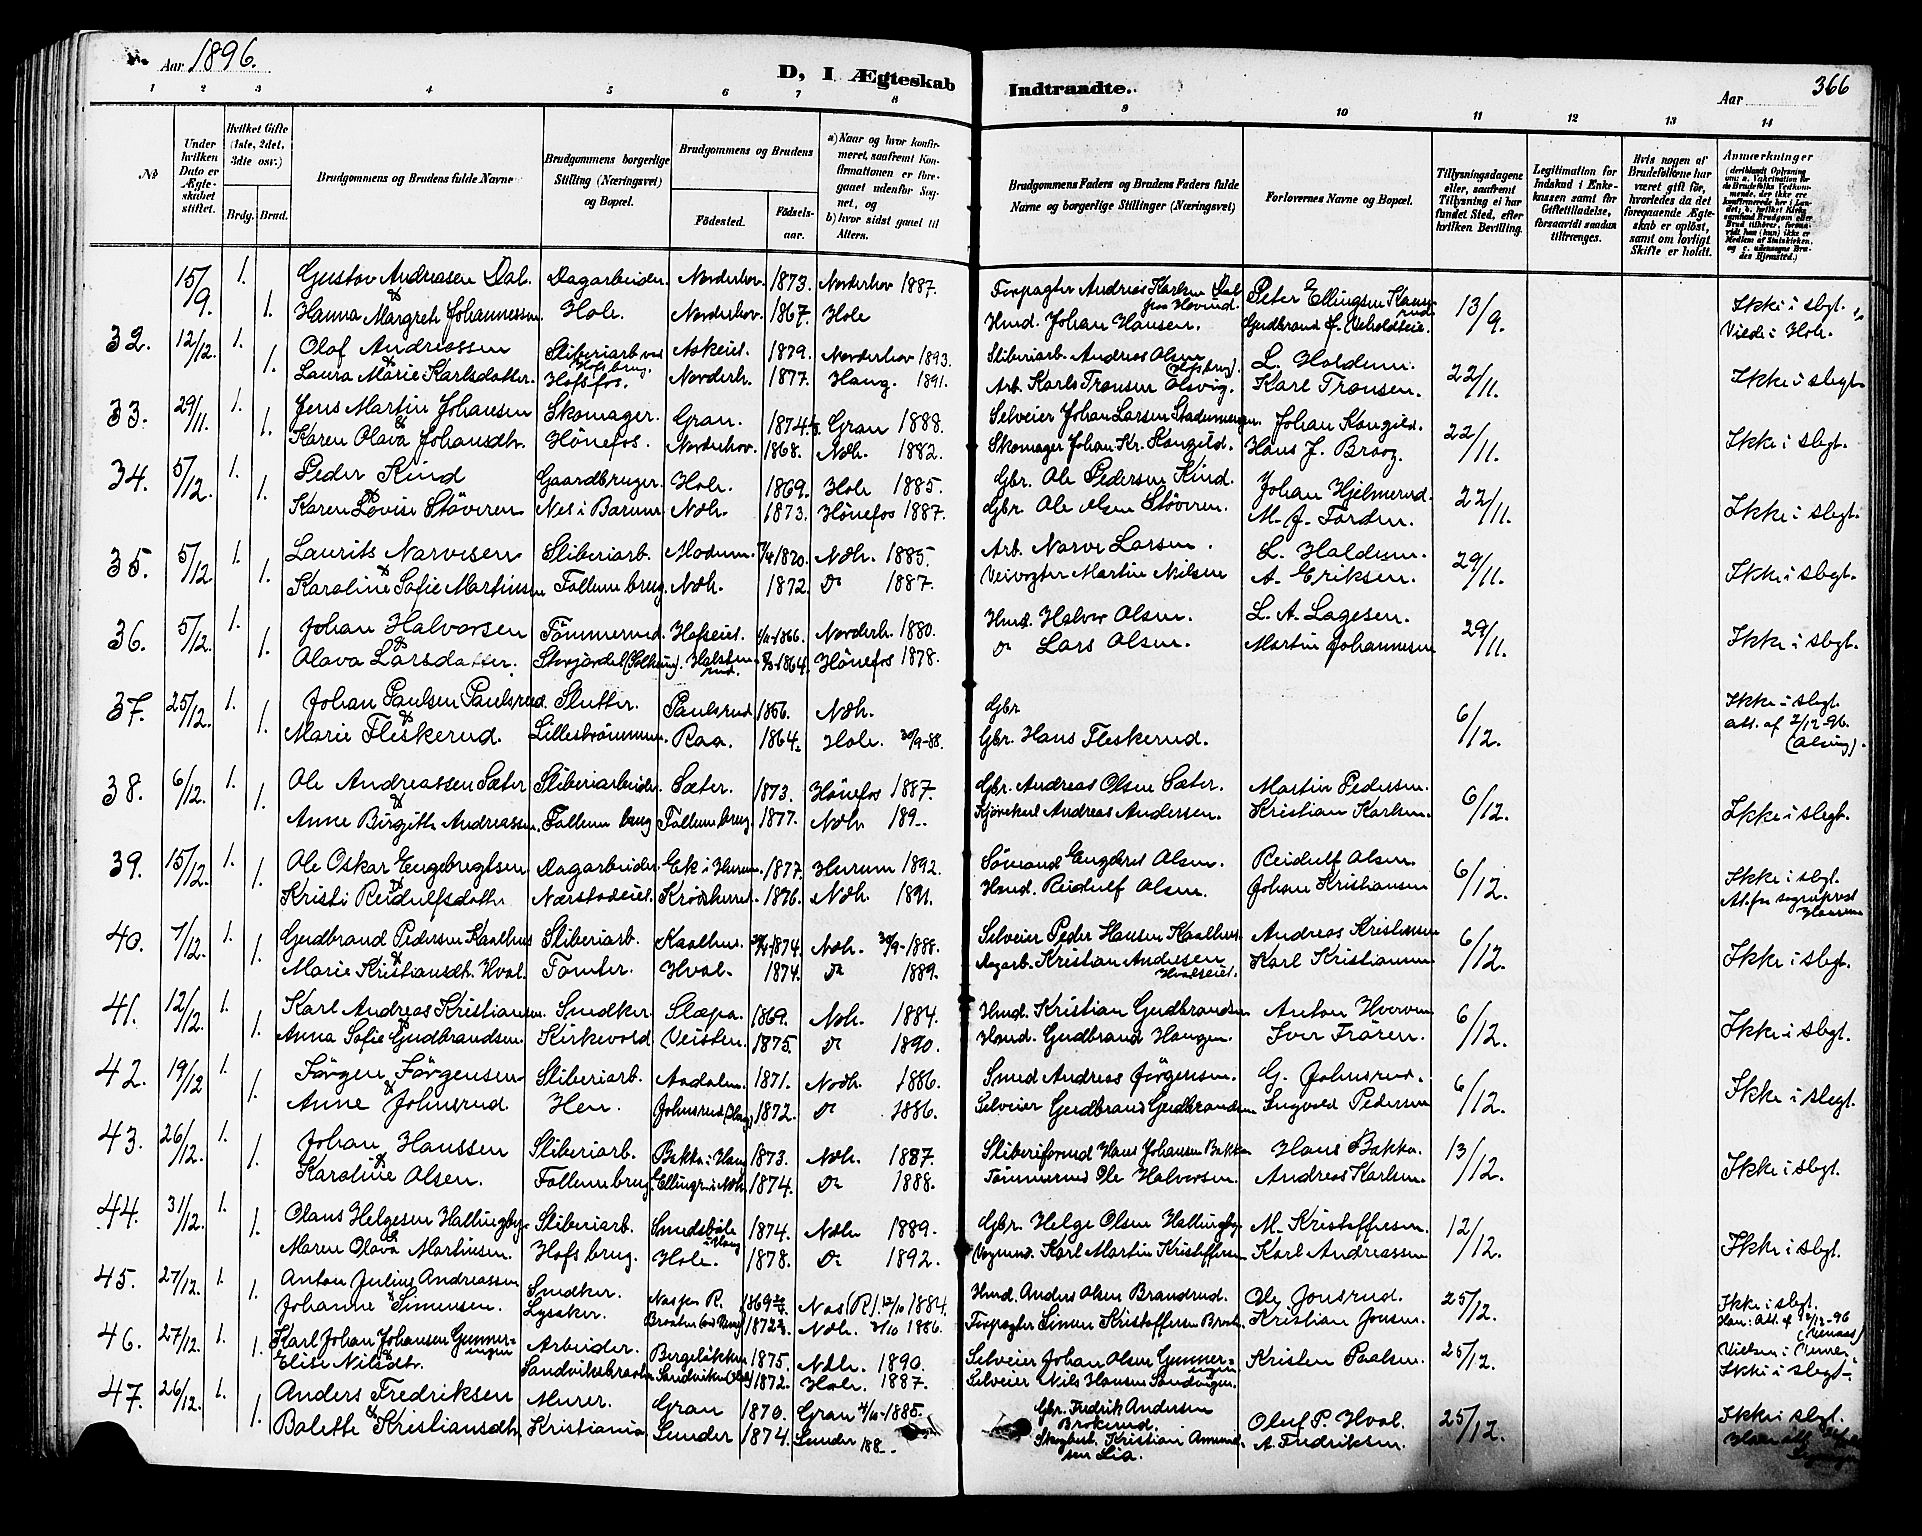 Aar 1896.
D, I Ægteskab Indtraadte.
Aar 366
1 2 3 4 5 6 7 8 9 10 11 12 13 14
No
Under hvilken Dato er Ægteskabet stiftet.
Hvilket Gifte (1ste, 2det, 3die osv.)
Brdg. Brud.
Brudgommens og Brudens fulde Navne
Brudgommens borgerlige Stilling (Næringsvei) og Bopæl.
Brudgommens og Brudens
Fødested.
Fødselsaar.
a) Naar og hvor konfirmeret, saafremt Konfirmationen er foregaaet udenfor Sognet, og
b) hvor sidst gaaet til Alters.
Brudgommens Faders og Brudens Faders fulde Navne og borgerlige Stillinger (Næringsvei)
Forlovernes Navne og Bopæl.
Tillysningsdagene eller, saafremt Tillysning ei har fundet Sted, efter hvilken Bevilling.
Legitimation for Indskud i Enkekassen samt for Giftetilladelse, forsaavidt saadan tiltrænges.
Hvis nogen af Brudefolkene har været gift før, hvorledes da det foregaaende Ægteskab er opløst, samt om lovligt Skifte er holdt.
Anmærkninger
15/9. 1. Gustav Andreasen Dal. Dagarbeider. Norderhov. 1873. Norderhov 1887. Forpagter Andreas Karlsen Dal Peter Ellingsen 13/9. Ikke i slegt.
& Hanna Margreth Johannessen Hole. Norderhov. 1867. Hole Hmd. Johan Hansen. Gudbrand J. Viede i Hole.
32. 12/12. 1. Olaf Andreassen Sliberiarb. ved Hofsbrug. Askeiet. 1879. Norderhov 1893. Sliberiarb. Andreas Olsen L. Holdum. 22/11. Ikke i slegt.
1. Laura Marie Karlsdatter. Hofsfos. Norderh. 1877. Haug. 1891. Arb. Karls Tronsen Olsvig. Karl Tronsen.
33. 29/11. 1. Jens Martin Johansen Skomager. Gran. 1874. Gran 1888. Selveier Johan Larsen Johan Kongild. 22/11. Ikke i slegt.
1. & Karen Olava Johansdtr. Hönefos. Norderhov. 1868. Ndh. 1882. Skomager Johan Kr. Kongild. Hans J.
34. 5/12. 1. Peder Kind Gaardbruger. Hole. 1869. Hole 1885. Gbr. Ole Pedersen Kind. Johan Hjelmerud. 22/11. Ikke i slegt.
1. & Karen Lovise Stöveren Nes i Barum. Ndh. 1873. Hönefos 1887. Gbr Ole Olsen Stöveren. M. J. Forden.
35. 5/12 1. Laurits Narvesen Sliberiarb. Modum. 1870. Ndh. 1885. Arb. Narve Larsen. L. Haldum. 29/11. Ikke i slegt.
1. & Karoline Sofie Martinsen Follum brug. Ndh. 1872. Do 1887. Veivogter Martin Nilsen A. Eriksen.
36. 5/12. 1. Johan Halvorsen Tömmermd. Hofseiet. 1866. Norderh. 1880. Hmd. Halvor Olsen L. A. Lagesen. 29/11. Ikke i slegt.
1. & Olava Larsdatter. Skrjardel 1864. Hönefos 1878. Do Lars Olsen. Martin Johannesen
37. 25/12. 1. Johan Paulsen Paulsrud. Slutter. Paulsrud 1866. Ndh. Gbr 6/12. Ikke i slegt.
1. & Marie Fleskerud. Lillestrømmen. Raa. 1864. Hole. 30/9-88. Gbr. Hans Fleskerud. att. af 2/12-96.
38. 6/12. 1. Ole Andreassen Sæter Sliberiarbeider. Sæter. 1873. Hönefos 1887. Gbr. Andreas Olsen Sæter. Martin Pedersen. 6/12. Ikke i slegt.
1. & Anne Birgitte Andreassen. Follum brug Follum brug. 1877. Ndh 189.. Kjörekarl Andreas Andersen. Kristian Karlsen.
39. 15/12. 1. Ole Oskar Engebregtsen Dagarbeider. Ek i Hurum. 1877. Hurum 1892. Sömand Engebret Olsen. Reidulf Olsen 6/12. Ikke i slegt.
1. & Kristi Reidulfsdatter Næristadeiet. Krödsherred. 1876. Ndh. 1891. Hmd. Reidulf Olsen. Johan Kristiansen At. fra sogneprest Hurum
40. 7/12. 1. Gudbrand Pedersen Kaalhus Sliberiarb. Kaalhus. 1874. Ndh. 30/9-1888. Selveier Peder Hansen Kaalhus. Andreas Kristiansen 6/12. Ikke i slegt.
1. & Marie Kristiansdt. Hval. Tomter. Hval. 1874. Do 1889. Dagarb. Kristian Andersen Hvalseiet. Karl Kristiansen
41. 12/12. 1. Karl Andreas Kristiansen. Snedker. Slæpa. 1869. Ndh. 1884. Hmd. Kristian Gudbrandsen Anton Hverven 6/12. Ikke i slegt.
1. & Anna Sofie Gudbrandsen. Kirkevold Veisten. 1875. Do 1890. Hmd. Gudbrand Haugen. Iver Frören.
42. 19/12 1. Jörgen Jörgensen Sliberiarb. Aadalen. 1871. Nodh. 1886. Smed Andreas Jörgensen. G. Johnsrud. 6/12. Ikke i slegt.
1. & Anne Johnsrud Hen. Johnsrud (Haug) 1872. Do 1886. Selveier Gudbrand Gudbrandsen Ingvald Pedersen
43. 26/12. 1. Johan Hanssen Sliberiarb. Bakka i Haug 1873. Ndh. 1887. Sliberiformd Hans Johansen Bakken Hans Bakka. 13/12. Ikke i slegt.
1. & Karoline Olsen. Follum brug. i Ndh. 1874. Do 1888. Tömmermd Ole Halvorsen. Andreas Karlsen.
44. 31/12. 1. Olaus Helgesen Hallingby. Sliberiarb. Smedsböle i Haug 1874. Ndh 1889. Gbr. Helge Olsen Hallingby. M. Kristoffersen. 12/12. Ikke i slegt.
1. & Maren Olava Martinsen. Hofs brug. Hole. 1878. Do 1892. Vognmd. Karl Martin Kristoffersen Karl Andreassen
45. 27/12. 1. Anton Julius Andreassen Snedker. R. 1869 Nas (R). 12/10 1884. Hmd. Anders Olsen Brandrud. Ole Jonsrud. 25/12. Ikke i slegt.
1. & Johanne Simensen. Lysaker. Braaten 1872 Ndh. 1886. Forpagter Simen Kristoffersen Kristian Jonsen. Han: Att. af 12/12-96
46. 27/12. 1. Karl Johan Johansen Gunnerengen Arbeider. Bergelökken 1875. Ndh. 1890. Selveier Johan Olsen Gunnerengen Kristen Paalsen. 25/12. Vielsen i
1. & Elise Nilsdtr. Sandviksbraaten. Sandviken 1872. Hole. 1887. Selveier Nils Hansen Sandvigen. Ikke i slegt.
47. 26/12. 1. Anders Fredriksen Murer. Gran 1870. Gran 1885. Gbr. Fredrik Andersen Brokerud. Oluf P. Hval. 25/12. Ikke i slegt.
1. & Balette Kristiansdtr Kristiania Lunder 1874. Lunder 188.. Skogbest. Kristian Amundsen Lia. A. Fredriksen.